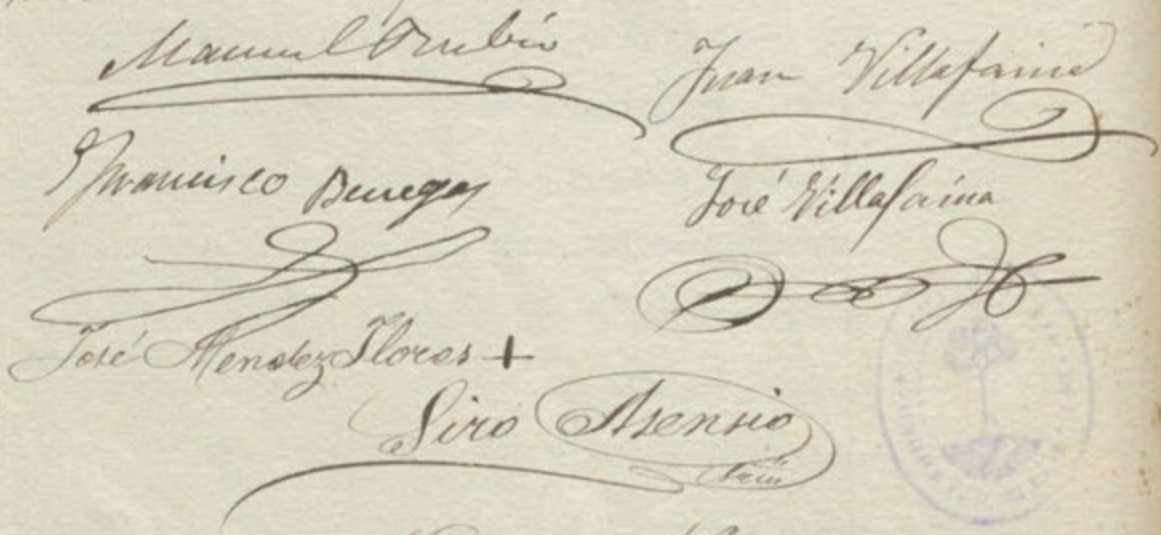 Manuel Orubio Juan Villafaina
Francisco Benegas José Villafaina
José Mendez Flores +
Siro Asensio